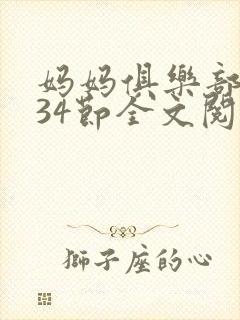 妈妈俱樂部
34節全文閱
獅子座的心